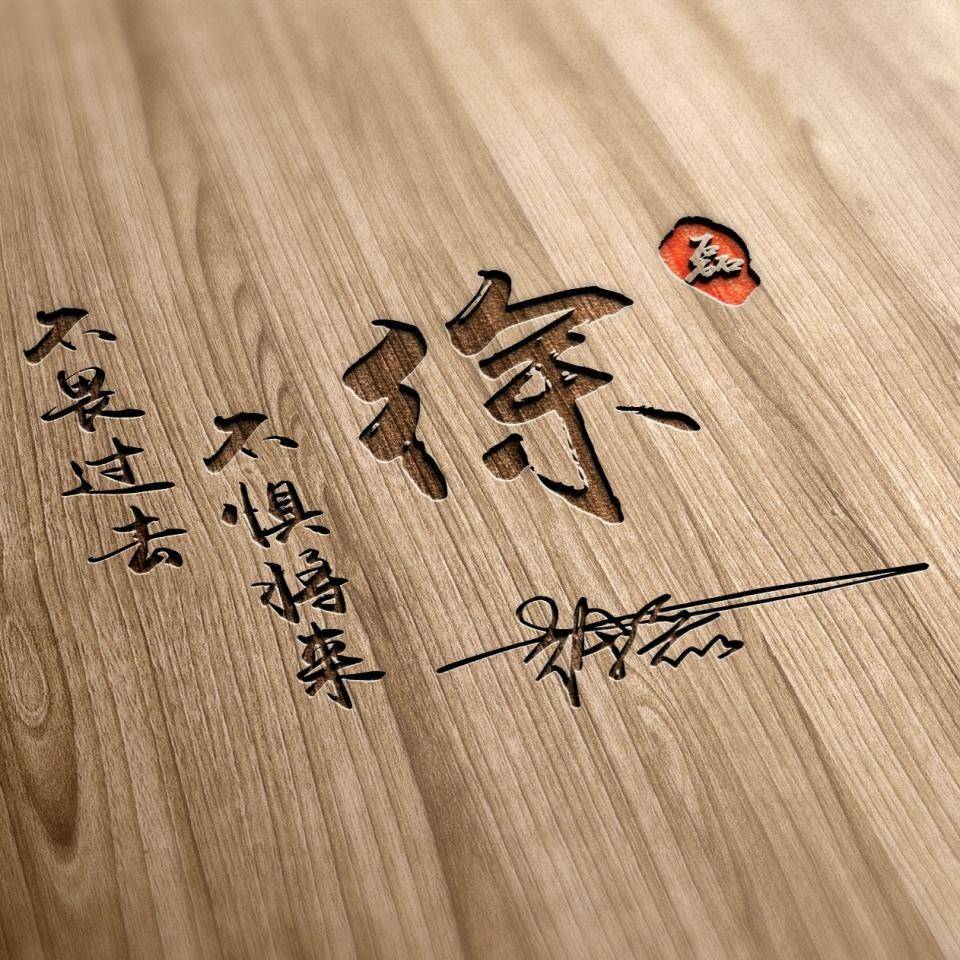 不畏过去
不惧将来
徐
磊